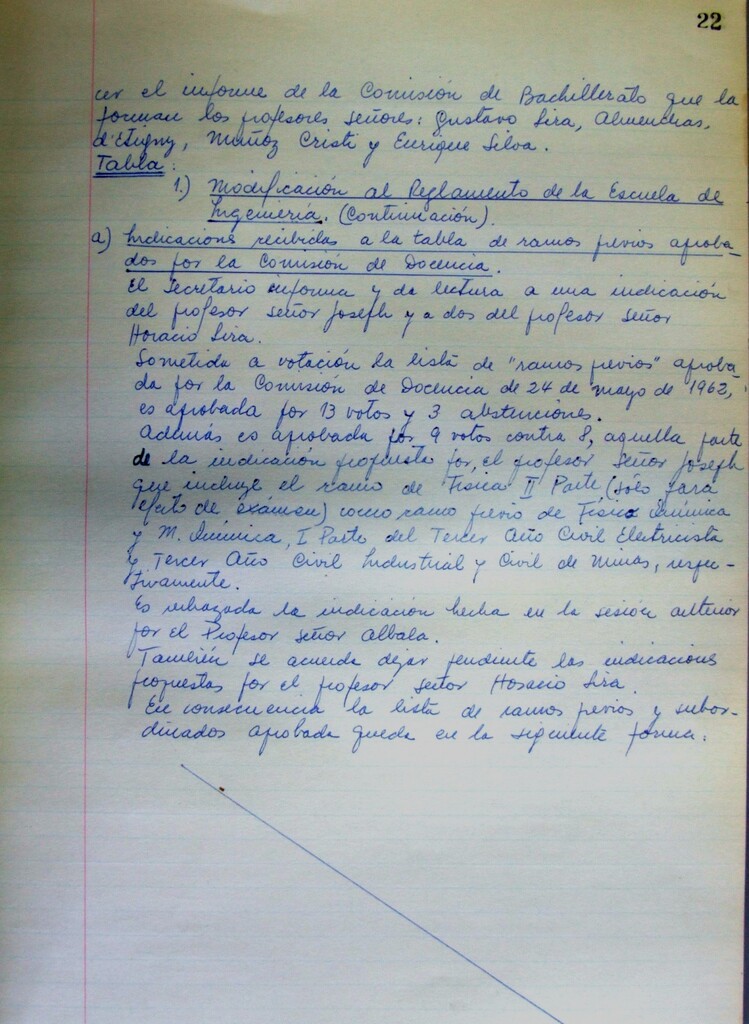 22
cer el informe de la Comisión de Bachillerato que la
forman los profesores señores: Gustavo Lira, Almenchas,
d'Etigny, Muñoz Cristi y Enrique Silva.
Tabla:
1.) Modificación al Reglamento de la Escuela de
Ingeniería. (Continuación).
a) Indicacions recibidas a la tabla de ramos previos aproba-
dos por la Comisión de Docencia.
El Secretario informa y da lectura a una indicación
del profesor señor Joseph y a dos del profesor señor
Horacio Lira.
Sometida a votación la lista de "ramos previos" aproba-
da por la Comisión de Docencia de 24 de mayo de 1962,
es aprobada por 13 votos y 3 abstenciones.
Además es aprobada por 9 votos contra 8, aquella parte
de la indicación propuesta por, el profesor señor Joseph
que incluye el ramo de Física II Parte (sólo para
efecto de exámen) como ramo previo de Física Química
y M. Química, I Parte del Tercer Año Civil Electricista
y Tercer Año Civil Industrial y Civil de Minas, respec-
tivamente.
Es rechazada la indicación hecha en la sesión anterior
por el Profesor señor Albala.
También se acuerda dejar pendiente las indicacions
propuestas por el profesor señor Horacio Lira.
En consecuencia la lista de ramos previos y subor-
dinados aprobada queda en la siguiente forma: